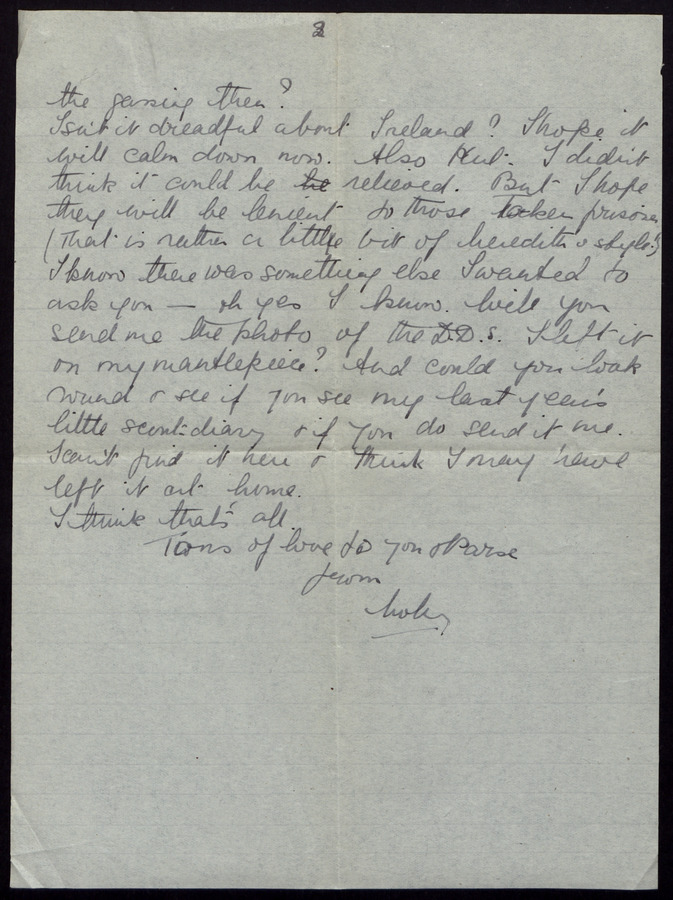 2
the gassing then?
Isn't it dreadful about Ireland? I hope it
will calm down now. Also Kut. I didn't
think it could be be relieved. But I hope
they will be lenient to those taken prisoner
(That is rather a little bit of Meredith's style!)
I know there was something else I wanted to
ask you — oh yes I know. Will you
send me the photo of the D.D.s. I left it
on my mantlepiece? And could you look
round & see if you see my last year's
little scout-diary & if you do send it me.
I can't find it here & think I may have
left it at home.
I think that's all.
Tons of love to you &
from